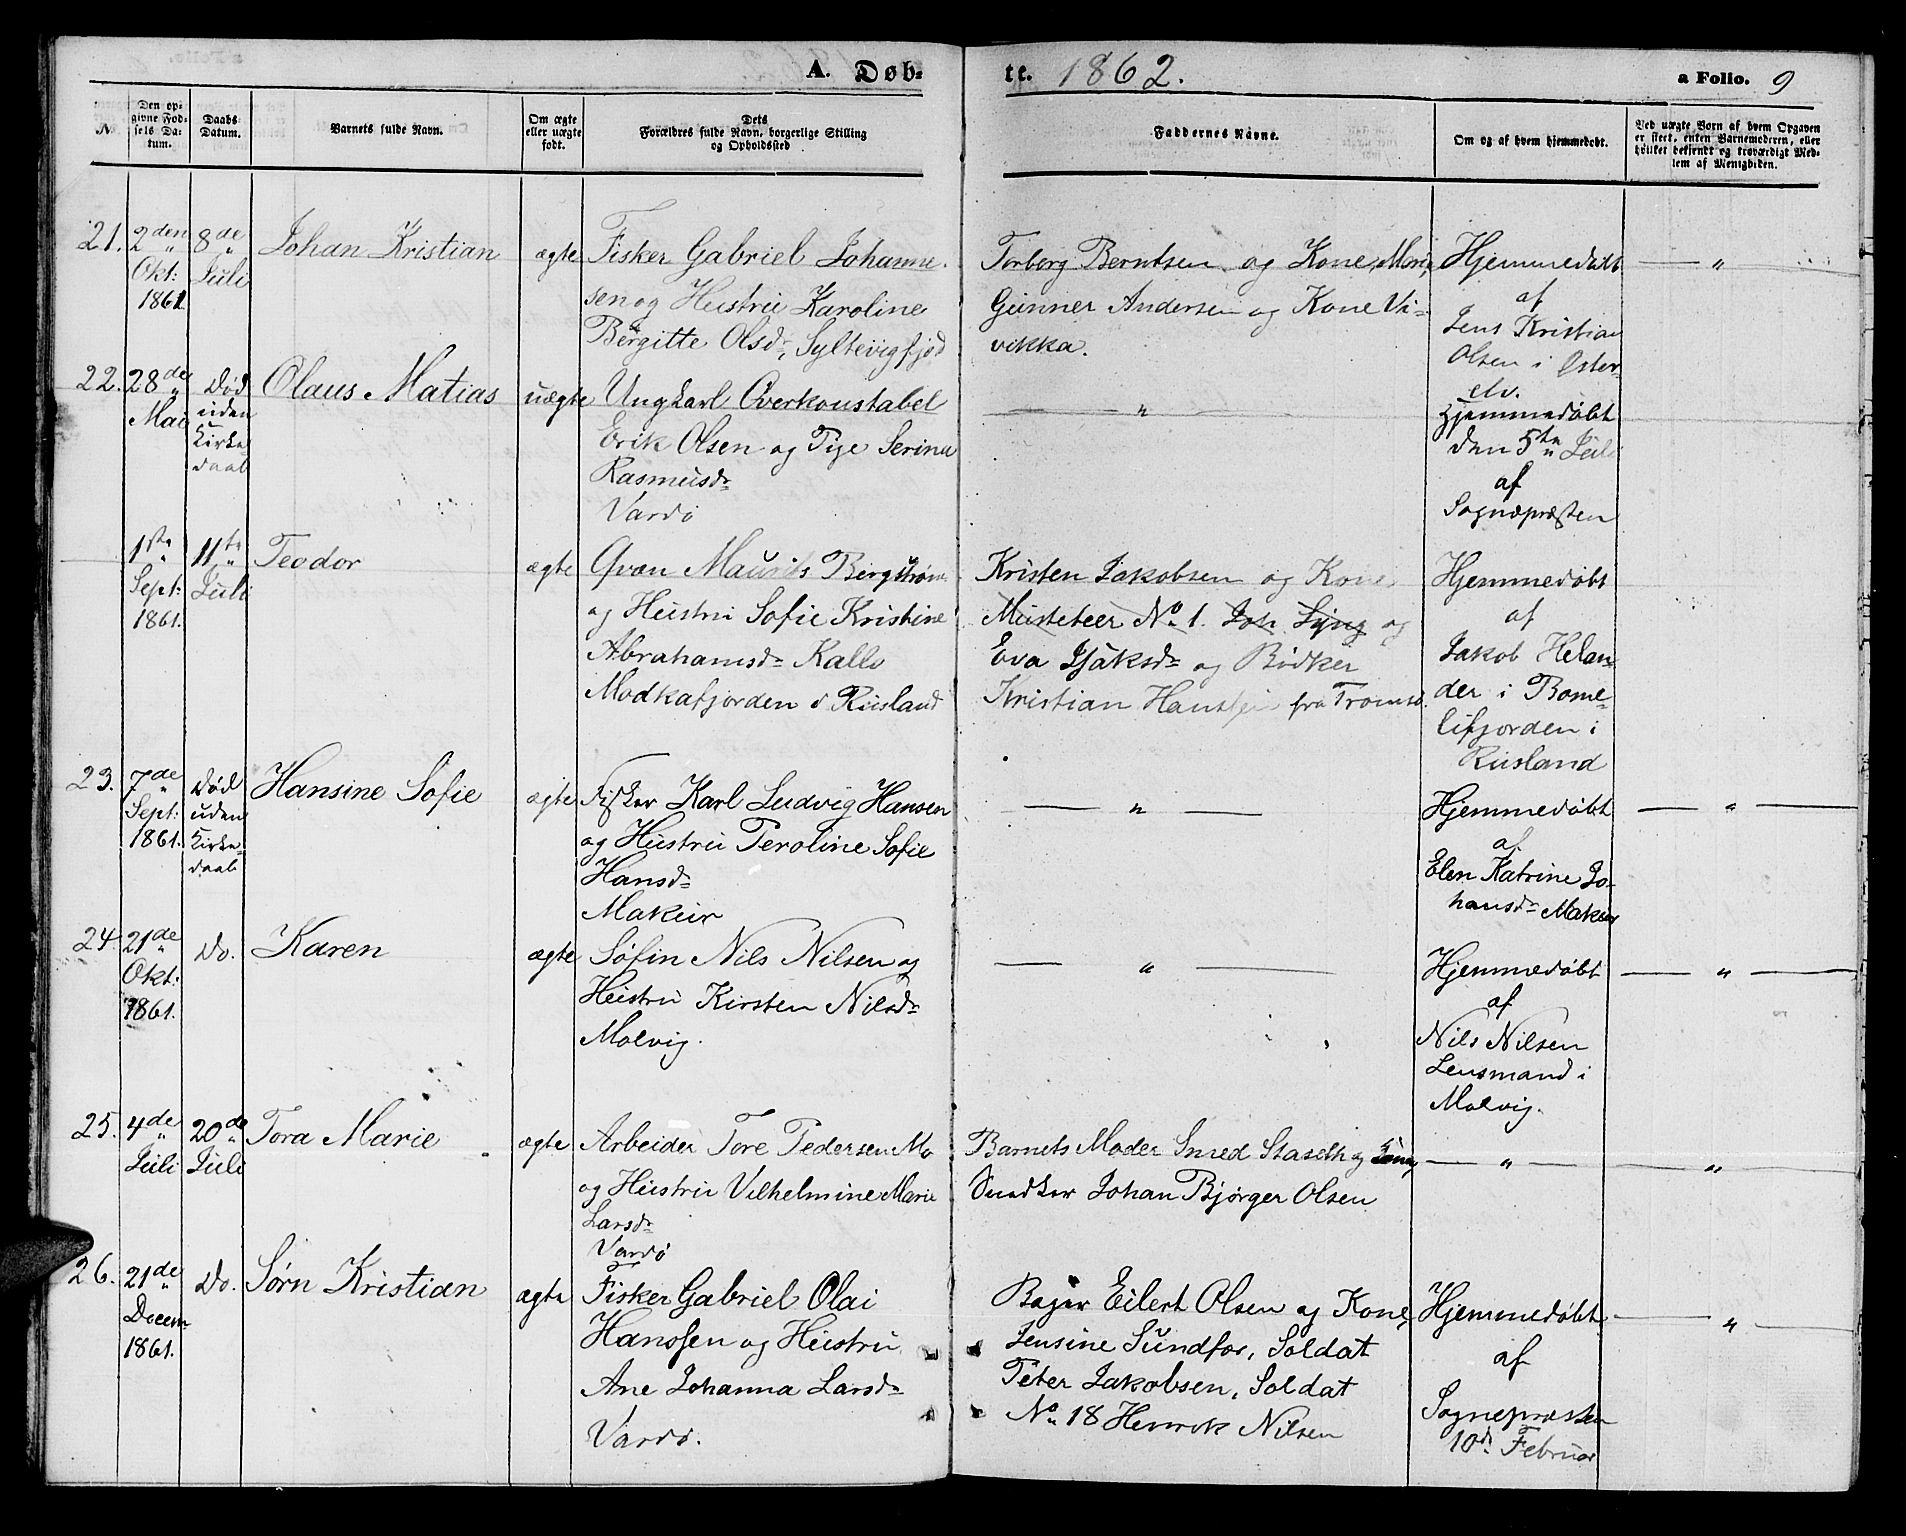 A. Døb-
te. 1862.
a Folio. 9
N.
Den op-
givne Fød-
sels Da-
tum.
Daabs-
Datum.
Barnets fulde Navn.
Om ægte
eller uægte
født.
Dets
Forældres fulde Navn, borgerlige Stilling
og Opholdssted
Faddernes Navne.
Om og af hvem hjemmedøbt.
Ved uægte Børn af hvem Opgaven
er skeet, enten Barnemoderen, eller
hvilket bekjendt og troværdigt Med-
lem af Menigheden.
21.
2den
Okt:
1861
8de
Juli
Johan Kristian
ægte
Fisker Gabriel Johanne-
sen og Hustru Karoline
Bergitte Olsdr, Syltevigfjod
Torberg Berntsen og Kone Mari,
Gunner Andersen og Kone Vi-
vikka.
Hjemmedøbt
af
Jens Kristian
Olsen i Øster-
elv.
— " —
22.
28de
Mai
Død
uden
Kirke-
daab
Olaus Matias
uægte
Ungkarl Overkonstabel
Erik Olsen og Pige Serina
Rasmusdr
Vardö
— " —
Hjemmedøbt
den 5te Juli
af
Sognepræsten
1ste
Sept:
1861.
11te
Juli
Teodor
ægte
Qvæn Maurits Bergstrøm
og Hustru Sofie Kristine
Abrahamsdr Kallo
Modkafjorden i Rusland
Kristen Jakobsen og Kone
Musketeer No 1. Joh. Lyng og
Eva Isaksdr og Bödker
Kristian Hanssen fra Tromsö.
Hjemmedøbt
af
Jakob Helan-
der i Bome-
lifjorden i
Rusland
23.
7de
Sept:
1861.
Død
uden
Kirke-
daab
Hansine Sofie
ægte
Fisker Karl Ludvig Hansen
og Hustru Peroline Sofie
Hansdr
Makeur
— " —
Hjemmedøbt
af
Elen Katrine Jo-
hansdr Makeur
— " —
24
21de
Okt:
1861.
Do.
Karen
ægte
Søfin Nils Nilsen og
Hustru Kirsten Nilsdr
Molvig.
— " —
Hjemmedøbt
af
Nils Nilsen
Lensmand i
Molvig.
— " —
25.
4de
Juli
20de
Juli
Tora Marie
ægte
Arbeider Tore Pedersen Mo
og Hustru Vilhelmine Marie
Larsdr
Vardö
Barnets Moder Smed Staseth og
Snedker Johan Bjørger Olsen
— " —
— " —
26.
21de
Decem
1861.
Do.
Sørn Kristian
ægte
Fisker Gabriel Olai
Hanssen og Hustru
Ane Johanna Larsdr
Vardö.
Bager Eilert Olsen og Kone
Jensine Sundfor, Soldat
Peter Jakobsen, Soldat
No 18 Henrik Nilsen
Hjemmedøbt
af
Sognepræsten
10de Februar
— " —